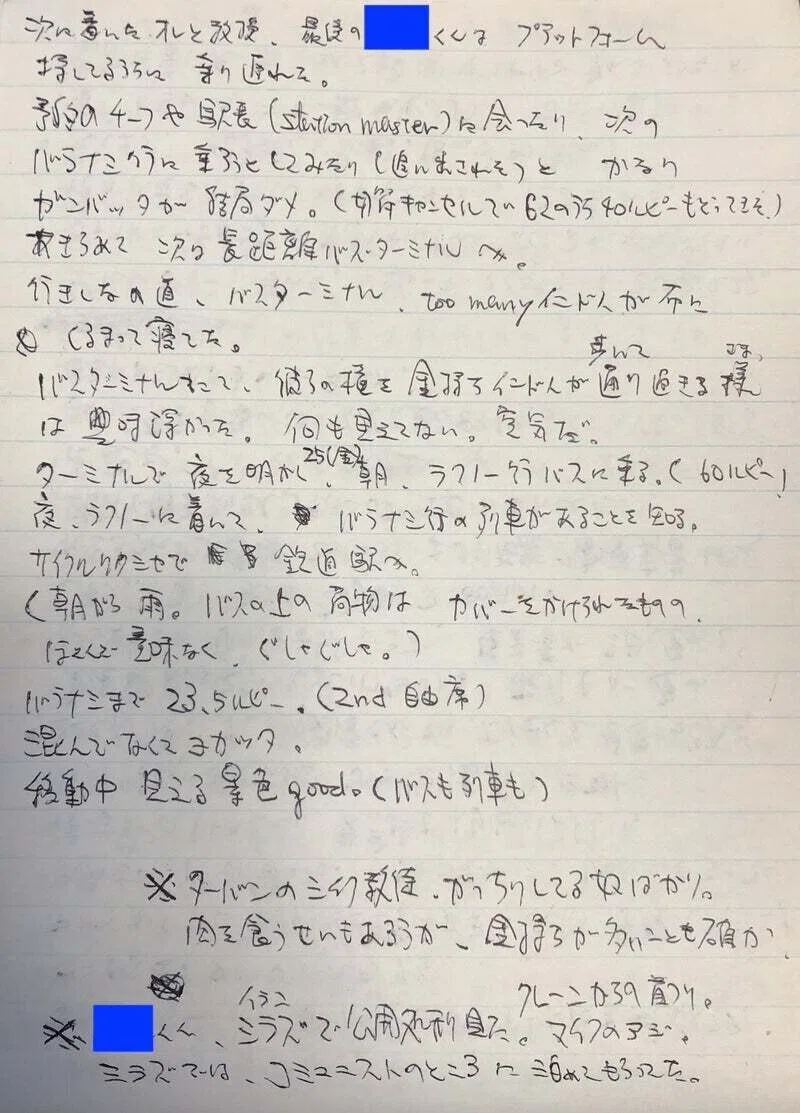 次に着いたオレと教授、最後の くんは プラットフォーム
探してるうちに 乗り遅れた。
予約のチーフや駅長(station master)に会ったり、次の
バラナシ行に乗ろうとしてみたり(追い出されそう)と かなり
ガンバッタが 結局ダメ。(切符キャンセルして 62のうち40ルピーもどってきた)
あきらめて 次は 長距離バスターミナルへ。
行きしなの道、バスターミナル、too many インド人が 布に
くるまって寝てた。
バスターミナルにて、彼らの横を 金持ちインド人が 歩いて 通り過ぎる様(さま)
は 興味深かった。何も見えてない。空気だ。
ターミナルで 夜を明かし、25(金)朝、ラクノー行バスに乗る。(60ルピー)
夜、ラクノーに着いて、バラナシ行の列車があることを知る。
サイクルリクシャで 鉄道駅へ。
(朝から 雨。バスの上の 荷物は カバーをかけられたものの、
ほとんど意味なく、ぐしゃぐしゃ。)
バラナシまで 23.5ルピー。(2nd 自由席)
混んでなくてヨカッタ。
移動中 見える景色good。(バスも列車も)
※ターバンのシィク教徒、がっちりしてる奴ばかり。
肉を食うせいもあろうが、金持ちが多いことも確か
イラン クレーンからの首つり。
※ くん、シラズで公開処刑見た。マイフのアジ。
シラズでは、コミュニストのところに泊めてもらってた。